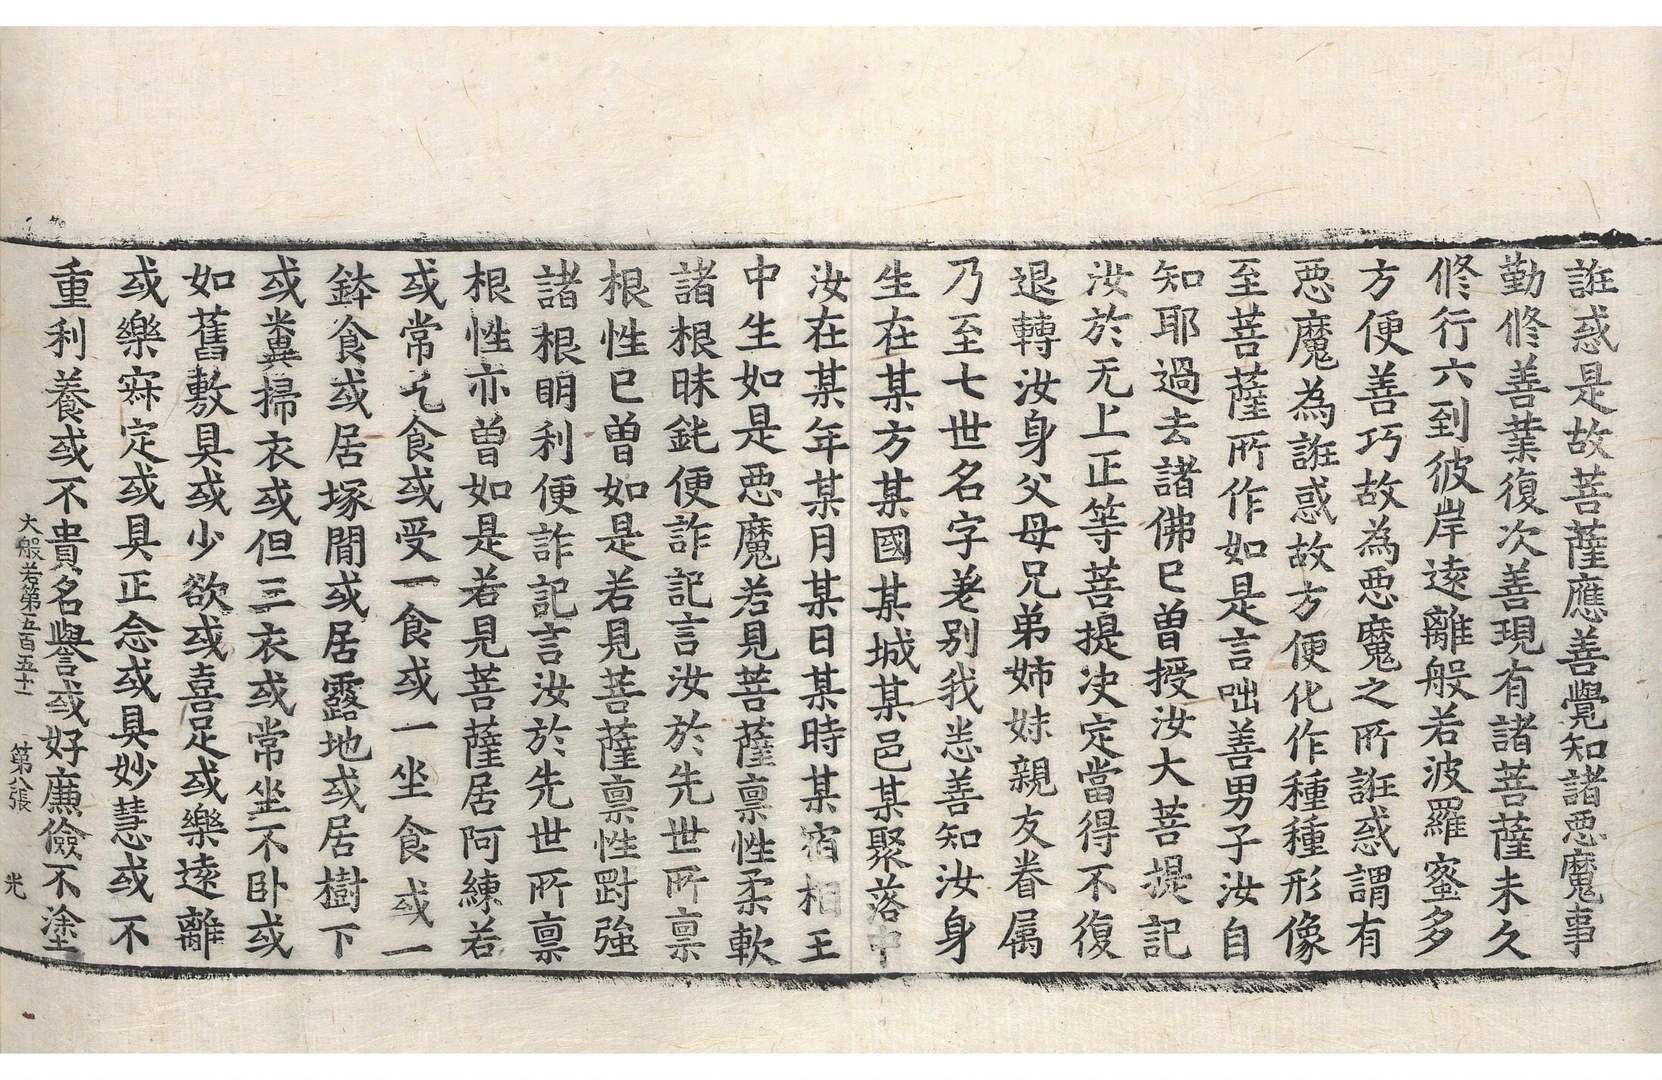 誑惑是故菩薩應善覺知諸惡魔事
勤修善業復次善現有諸菩薩未久
修行六到彼岸遠離般若波羅蜜多
方便善巧故為惡魔之所誑惑謂有
惡魔為誑惑故方便化作種種形像
至菩薩所作如是言咄善男子汝自
知耶過去諸佛已曾授汝大菩提記
汝於无上正等菩提决定當得不復
退轉汝身父母兄弟姉妹親友眷属
乃至七世名字差别我悉善知汝身
生在某方某國某城某邑某聚落中
汝在某年某月某日某時某宿相王
中生如是惡魔若見菩薩禀性柔軟
諸根昧鈍便詐記言汝於先世所禀
根性已曾如是若見菩薩禀性剛強
諸根明利便詐記言汝於先世所禀
根性亦曾如是若見菩薩居阿練若
或常乞食或受一食或一坐食或一
鉢食或居塚間或居露地或居樹下
或糞掃衣或但三衣或常坐不卧或
如舊敷具或少欲或喜足或樂遠離
或樂寂定或具正念或具妙慧或不
重利養或不貴名譽或好廉儉不塗
大般若第五百五十 第八張 光